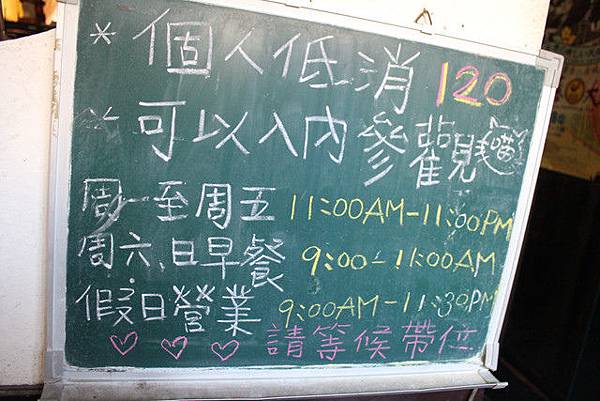 *個人低消 120
*可以入內參觀 喵
周一至周五 11:00AM-11:00PM
周六.日早餐 9:00-11:00AM
假日營業 9:00AM-11:30PM
請等候帶位